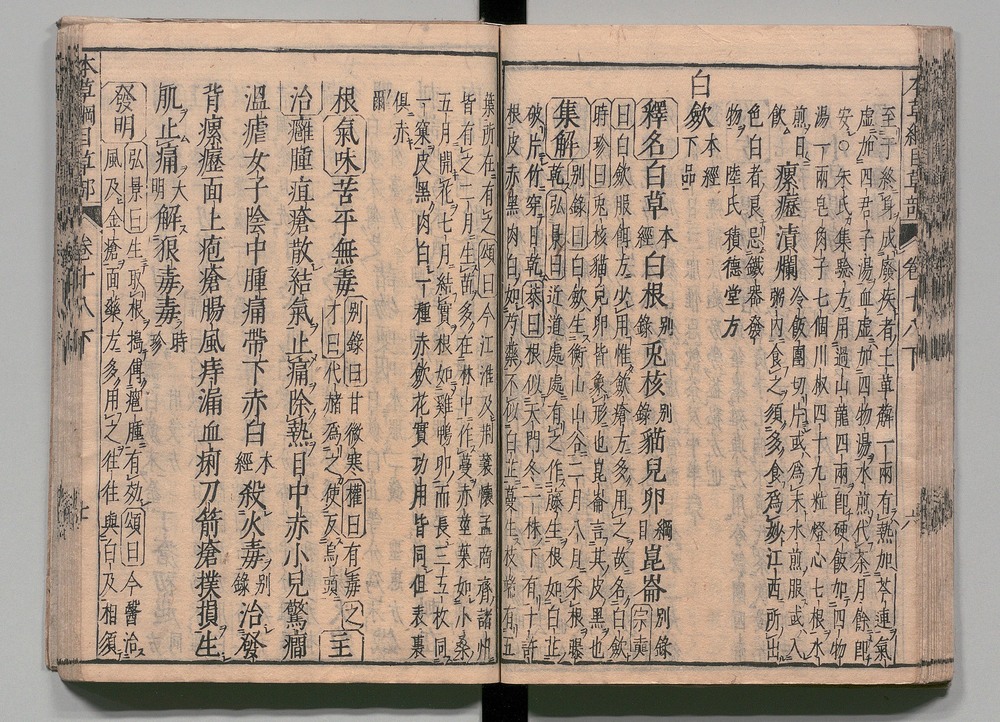 本草綱目草部 卷十八下 六
至于終身成廢疾者土萆薢一兩有熱加芩連氣
虛加四君子湯血虛加四物湯水煎代茶月餘卽
安○朱氏集驗方用過山龍四兩卽硬飯加四物
湯一兩皂角子七個川椒四十九粒燈心七根水
煎日飲 瘰癧潰爛 冷飯團切片或爲末水煎服或入
粥內食之須多食爲妙江西所出
色白者良忌鐵器發
物 陸氏積德堂方
白斂 本經下品
釋名 白草 本經 白根 別錄 兔核 別錄 貓兒卵 綱目 崑崙 別錄 宗奭
曰白斂服餌方少用惟斂瘡方多用之故名白斂
時珍曰兔核貓兒卵皆象形也崑崙言其皮黑也
集解 別錄曰白斂生衡山山谷二月八月采根暴
乾弘景曰近道處處有之作藤生根如白芷
破片竹穿日乾恭曰根似天門冬一株下有十許
根皮赤黑肉白如芍藥不似白芷蔓生枝端有五
葉所在有之頌曰今江淮及荊襄懷孟商齊諸州
皆有之二月生苗多在林中作蔓赤莖葉如小桑
五月開花七月結實根如雞鴨卵而長三五枚同
一窠皮黑肉白一種赤斂花實功用皆同但表裏
俱赤
爾
根 氣味 苦平無毒 別錄曰甘微寒權曰有毒之
才曰代赭爲之使反烏頭 主
治 癰腫疽瘡散結氣止痛除熱目中赤小兒驚癇
溫瘧女子陰中腫痛帶下赤白 本經 殺火毒 別錄 治發
背瘰癧面上皰瘡腸風痔漏血痢刀箭瘡撲損生
肌止痛 大明 解狼毒毒 時珍
發明 弘景曰生取根搗傅癰腫有效頌曰今醫治
風及金瘡面藥方多用之往往與白及相須
本草綱目草部 卷十八下 七